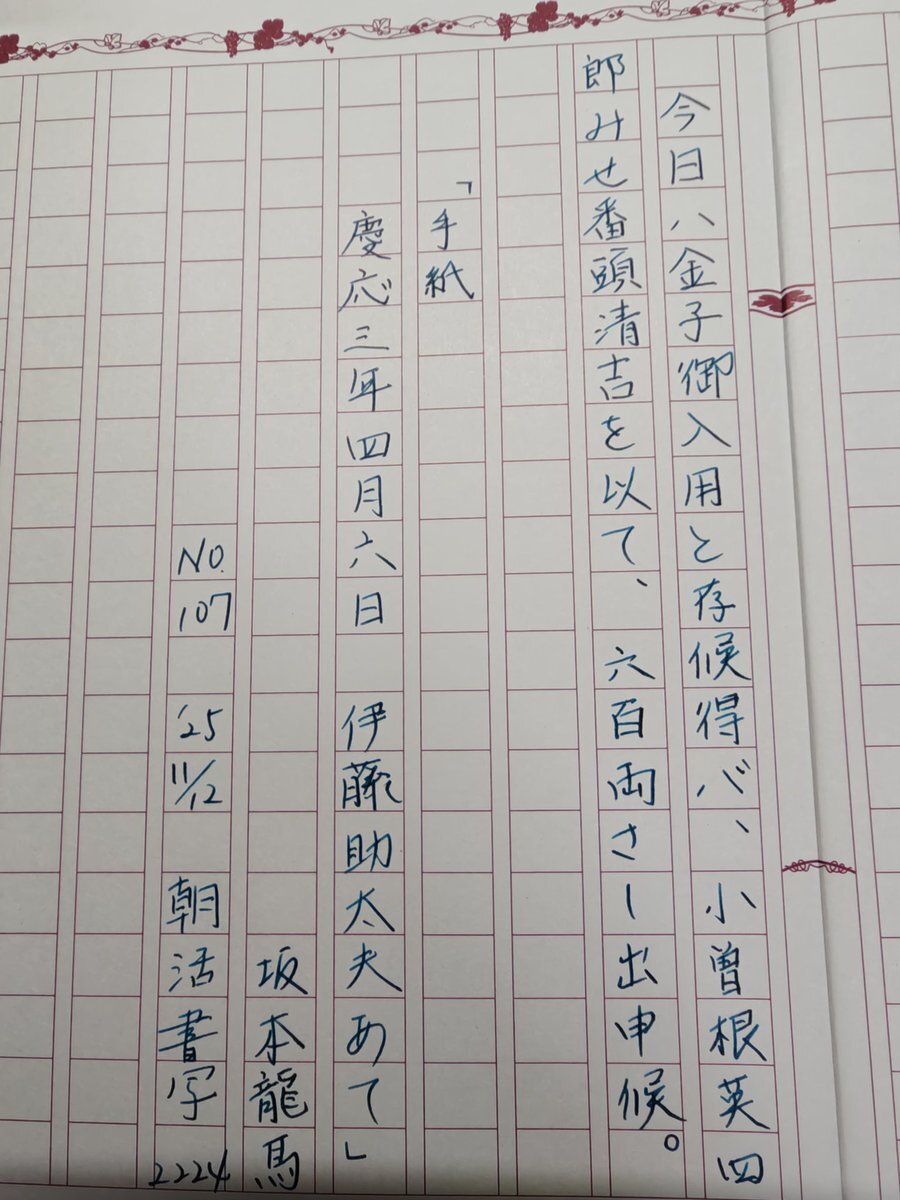 今日ハ金子御入用と存候得バ、小曽根英四
郎みせ番頭清吉を以て、六百両さし出申候。
「手紙
慶応三年四月六日 伊藤助太夫あて」
坂本龍馬
NO. 107 '25 11/12 朝活書写 2224